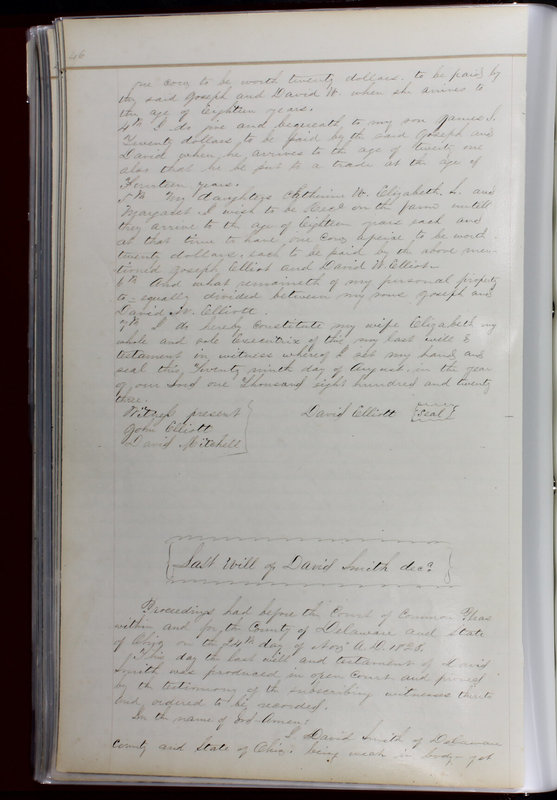 46
one cow to be worth twenty dollars. to be paid by
the said Joseph and David W. when she arrives to
the age of Eighteen years.
4th I do give and bequeath to my son James S.
Twenty dollars to be paid by the said Joseph and
David when he arrives to the age of twenty one
also that he be put to a trade at the age of
Fourteen years.
5th My daughters Catherine W. Elizabeth. S. and
Margaret I wish to be on the farm untill
they arrive to the age of Eighteen years each and
at that time to have one Cow apeice to be worth
twenty dollars, each to be paid by the above men-
tioned Joseph Elliot and David W. Elliot.
6th And what remaineth of my personal property
to equally divided between my sons Joseph and
David W. Elliott.
7th I do hereby Constitute my wife Elizabeth my
whole and sole Executrix of this my last will &
testament in witness whereof I set my hand and
seal this Twenty ninth day of August in the year
of our Lord one Thousand eight hundred and twenty
three.
Witness present
David Elliott {seal}
John Elliott
David Mitchell
Last Will of David Smith decd.
Proceedings had before the Court of Common Pleas
within and for the County of Delaware and State
of Ohio on the 24th day of Nov A.D. 1823.
This day the last will and testament of David
Smith was produced in open Court and proved
by the testimony of the subscribing witnesses thereto
and ordered to be recorded.
In the name of God. Amen:
I David Smith of Delaware
County and State of Ohio. being weak in body yet